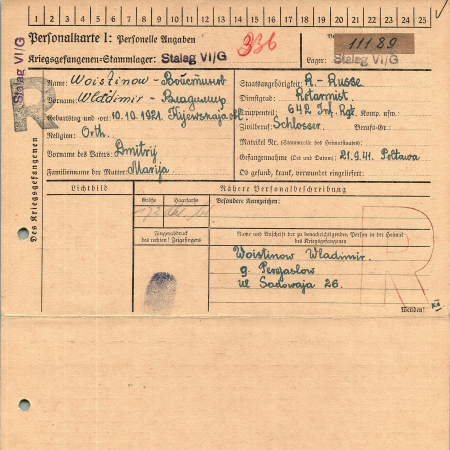 1 2 3 4 5 6 7 8 9 10 11 12 13 14 15 16 17 18 19 20 21 22 23 24 25
Personalkarte I: Personelle Angaben
Kriegsgefangenen-Stammlager: Stalag VI/G
336
11189
Lager: Stalag VI/G
Stalag VI/G
R
Des Kriegsgefangenen
Name: Woistinow -
Vorname: Wladimir - Владимир
Geburtstag und -ort: 10.10.1921.
Religion: Orth.
Vorname des Vaters: Dmitrij
Familienname der Mutter: Marija
Staatsangehörigkeit: R - Russe.
Dienstgrad: Rotarmist.
Truppenteil: 642 Inf. Rgt. Komp. usw.
Zivilberuf: Schlosser. Berufs-Gr.:
Matrikel Nr. (Stammrolle des Heimatstaates):
Gefangennahme (Ort und Datum): 21.9.41. Poltawa
Ob gesund, krank, verwundet eingeliefert:
Lichtbild
Nähere Personalbeschreibung
Größe
Haarfarbe
Besondere Kennzeichen:
Fingerabdruck
des rechten! Zeigefingers
Name und Anschrift der zu benachrichtigenden Person in der Heimat
des Kriegsgefangenen
Woistinow Wladimir.
g. Perejaslow
ul Sadowaja 26.
R
Wenden!